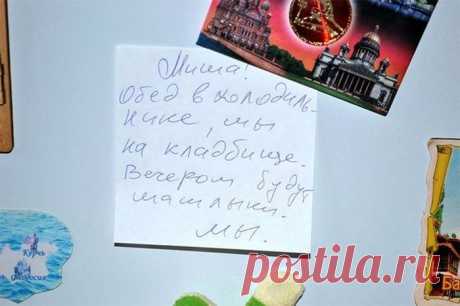 Миша!
Обед в холодиль-
нике, мы
на кладбище.
Вечером будут
шашлыки.
Мы.
Ба
postila.ru